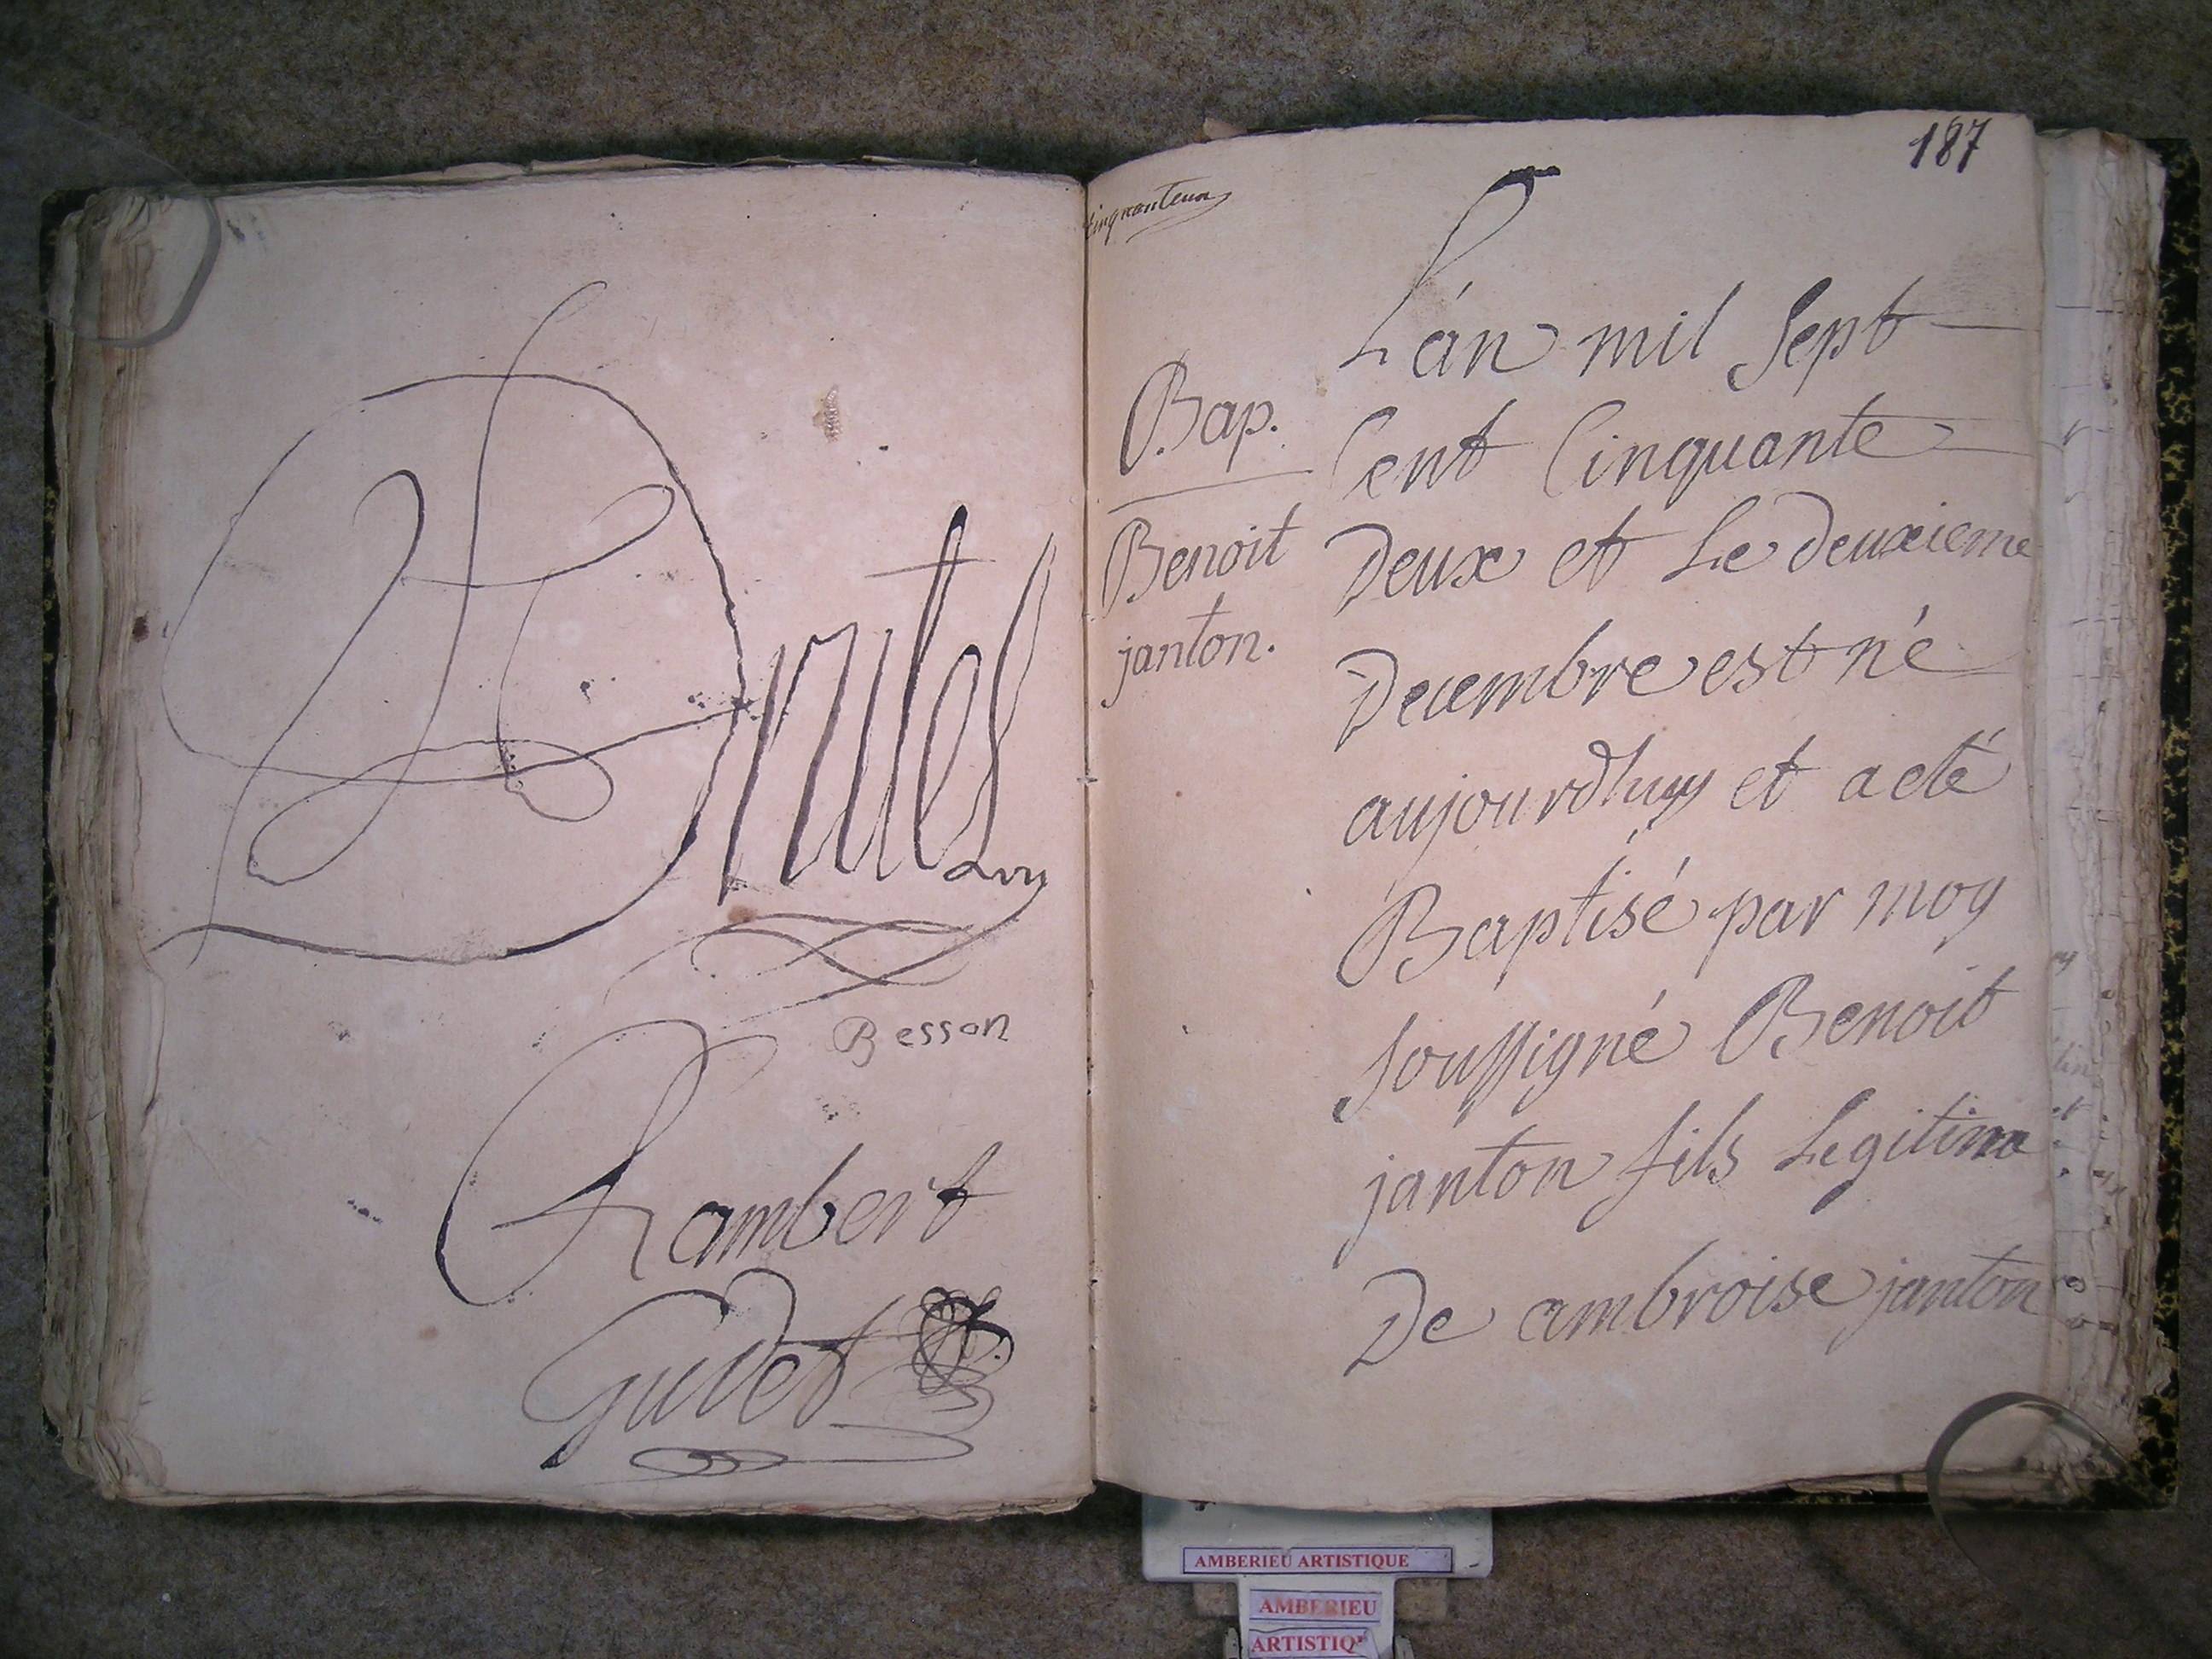 Besson
Rambert
Gudet
187
Cinquanteun
Bap.
Benoit
janton.
L'an mil Sept
Cent Cinquante
Deux et Le deuxieme
Decembre est né
aujourdhuy et a eté
Baptisé par moy
soussigné Benoit
janton fils Legitime
De ambroise janton
AMBERIEU ARTISTIQUE
AMBERIEU
ARTISTIQ